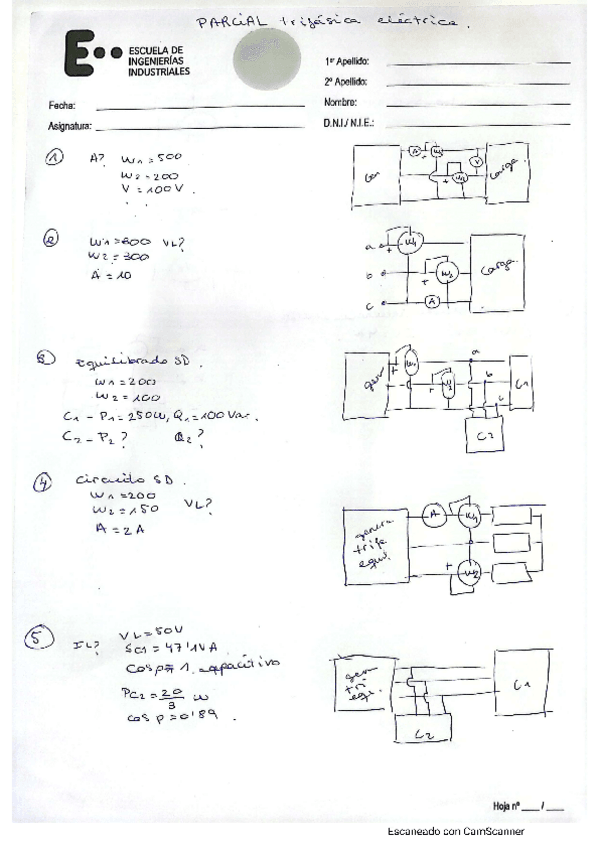 PARCIAL trifásica eléctrica.
E
ESCUELA DE
INGENIERÍAS
INDUSTRIALES
1er Apellido:
2º Apellido:
Fecha:
Nombre:
Asignatura:
D.N.I./ N.I.E.:
1 A? W1 = 500
W2 = 200
V = 100V
Gen A W1 W2 V + + carga
2 W1 = 600 VL?
W2 = 300
A = 10
a b c W1 W2 A + + carga
3 Equilibrado SD.
W1 = 200
W2 = 100
C1 - P1 = 250W, Q1 = 100 Var.
C2 - P2? Q2?
gen + W1 + W2 a b c C1
C2
4 Circuito SD.
W1 = 200
W2 = 150 VL?
A = 2A
genera
trifa
equi.
A W1 + W2
5 IL? VL = 50V
SC1 = 47'1VA
cosρ = 1 capacitivo
PC2 = 20/3 W
cosρ = 0'89.
gen
tri
equi.
C1
C2
Hoja nº ___ / ___
Escaneado con CamScanner